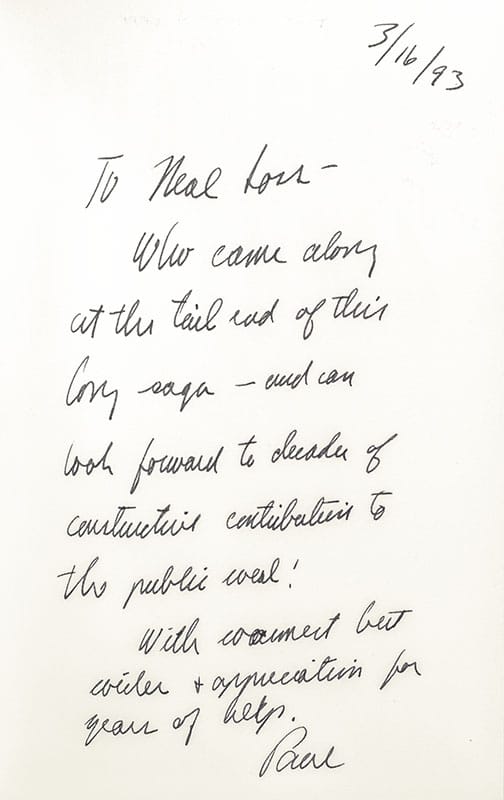 3/16/93
To Neal
Who came along
at the tail end of this
long saga – and can
look forward to decades of
constructive contributions to
the public weal!
With warmest best
wishes + appreciation for
years of help.
Paul